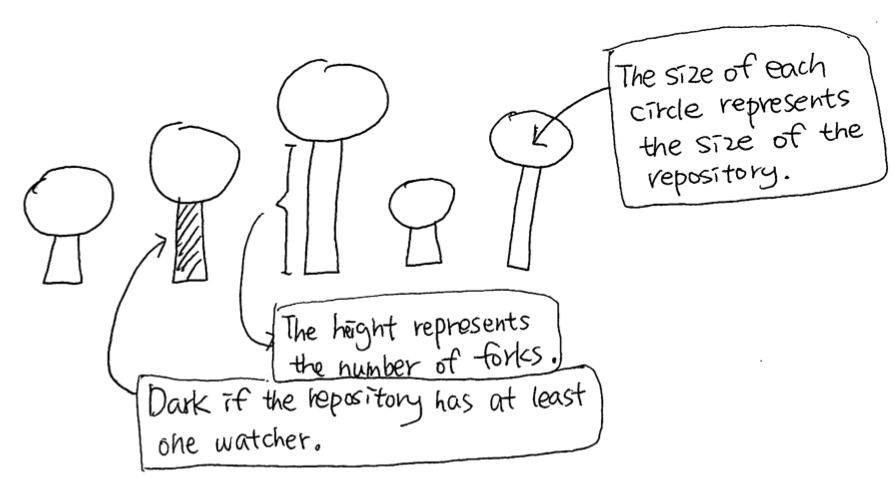 The size of each
circle represents
the size of the
repository.
The height represents
the number of forks.
Dark if the repository has at least
one watcher.